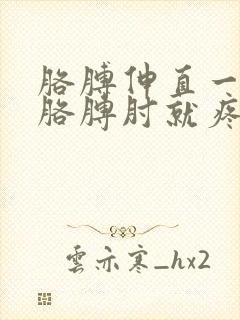 胳膊伸直一
胳膊肘就疼
雲亦寒_hx2